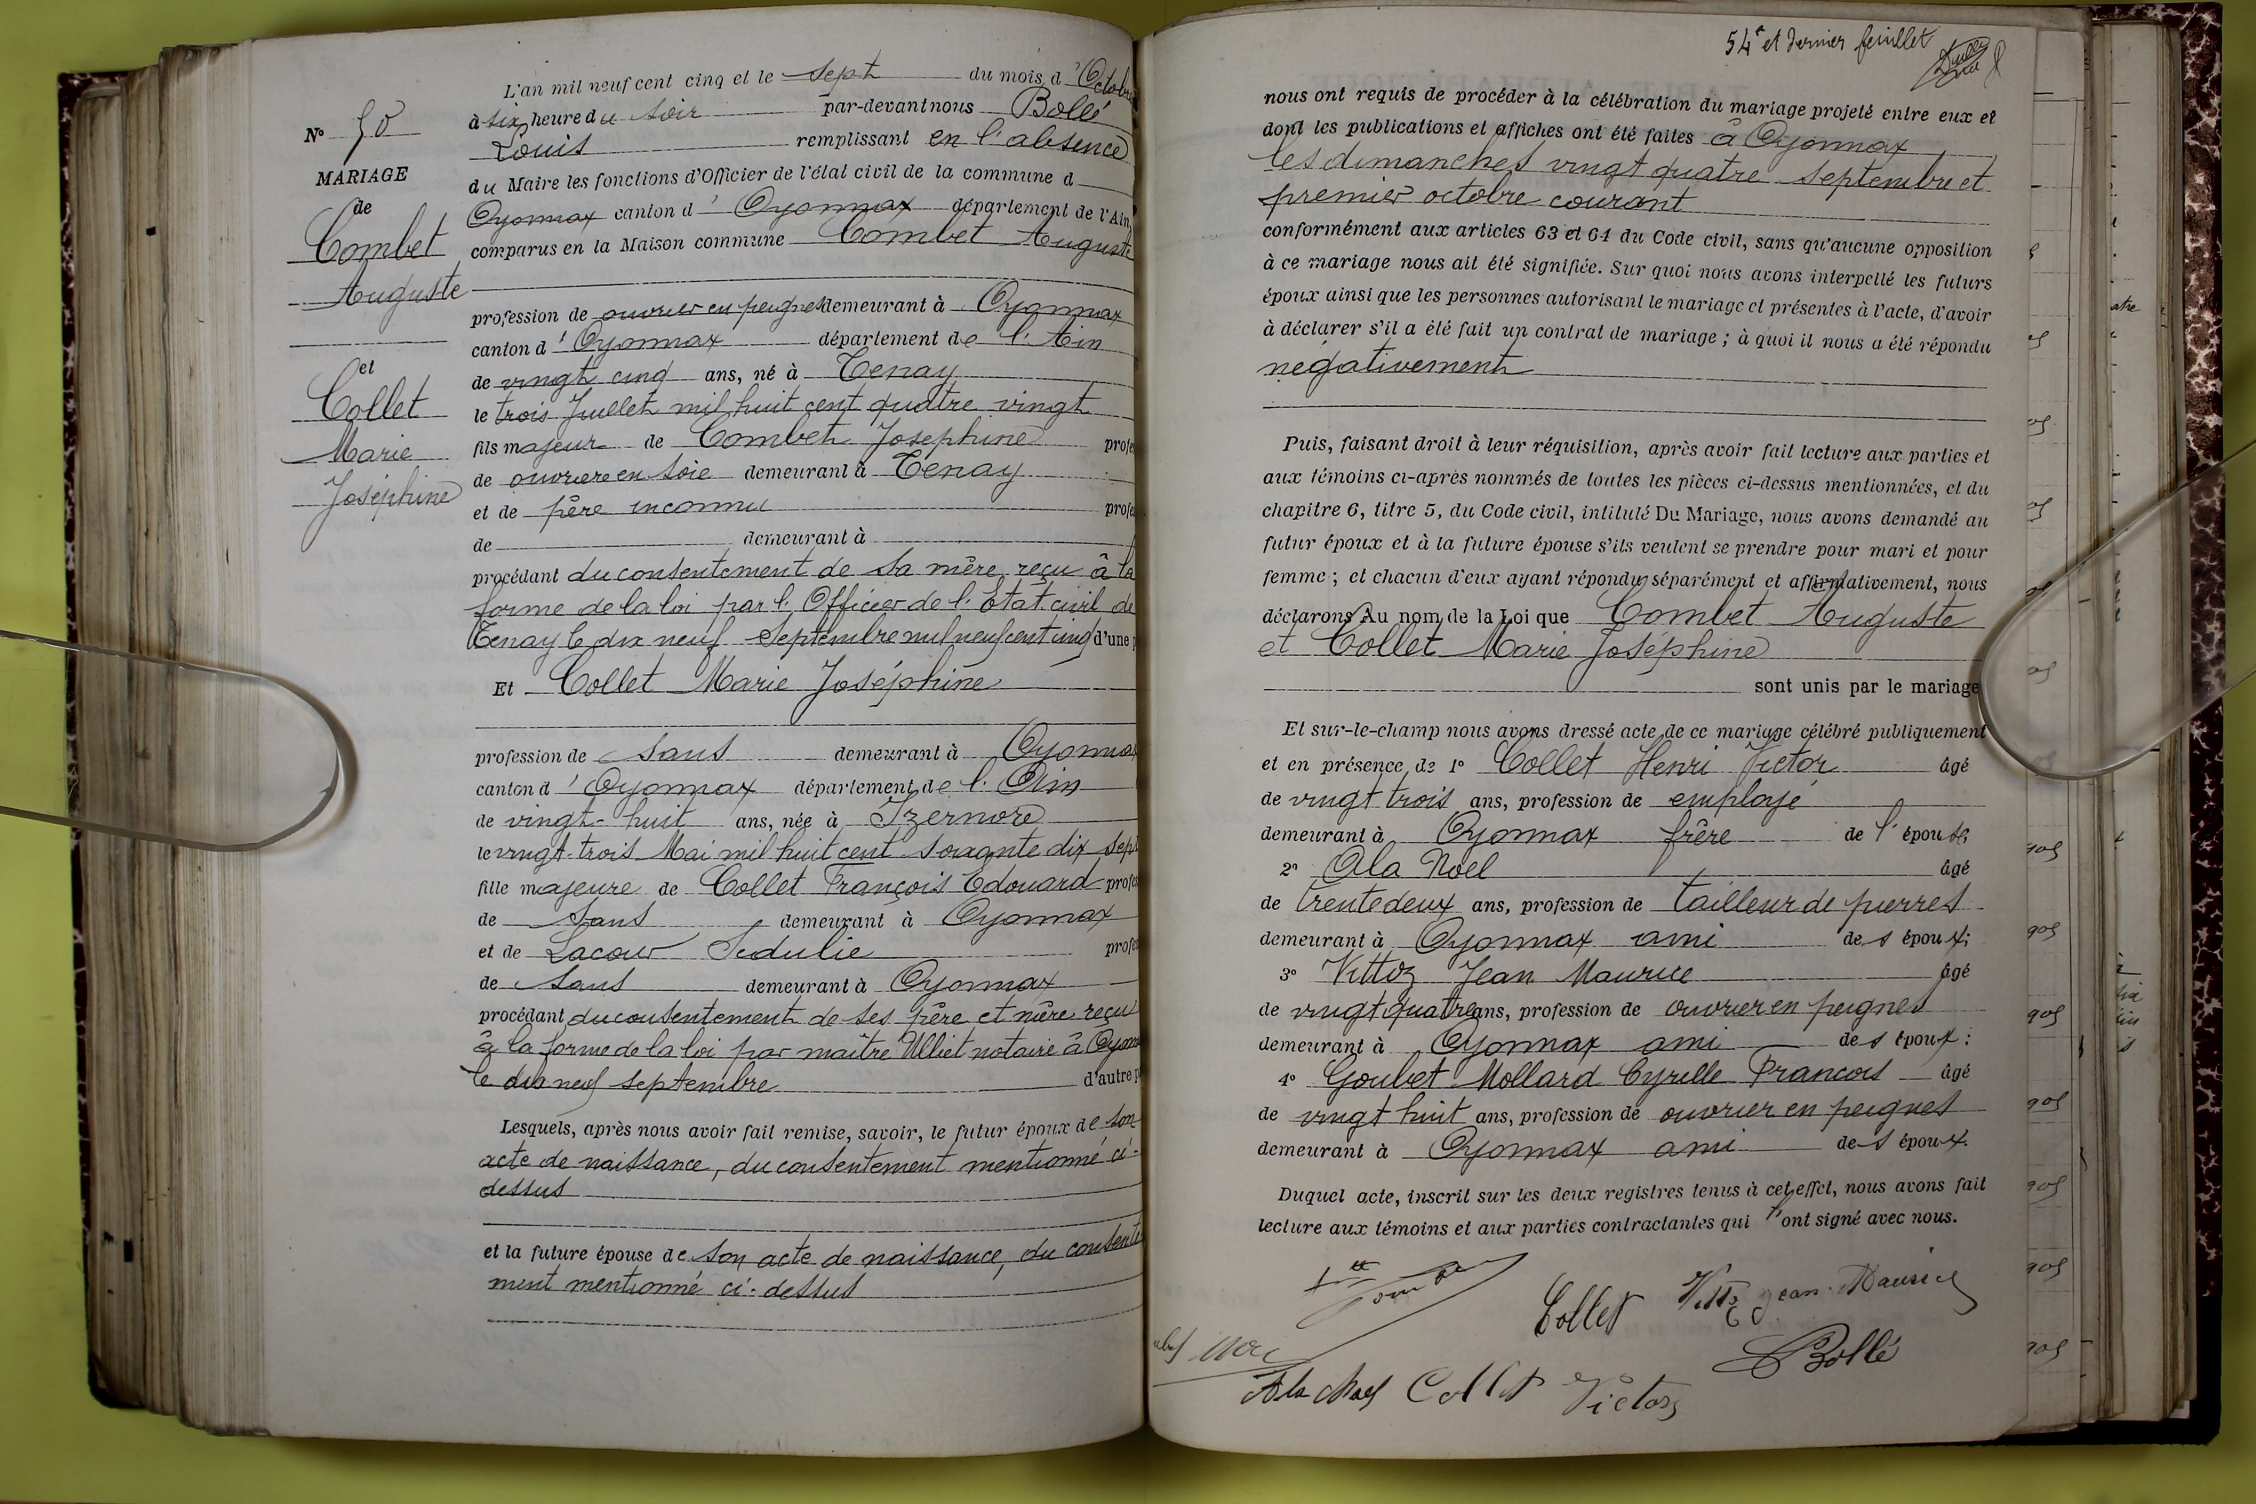 N° 50
MARIAGE
de
Combet
Auguste
et
Collet
Marie
Joséphine
L'an mil neuf cent cinq et le sept du mois d'Octobre
à six heure du soir par-devant nous Bollé
Louis remplissant en l'absence
du Maire les fonctions d'Officier de l'état civil de la commune d
Oyonnax canton d'Oyonnax département de l'Ain,
comparus en la Maison commune Combet Auguste
profession de ouvrier en peignes demeurant à Oyonnax
canton d'Oyonnax département de l'Ain
de vingt cinq ans, né à Tenay
le trois Juillet mil huit cent quatre vingt
fils majeur de Combet Josephine profes
de ouvriere en soie demeurant à Tenay
et de père inconnu profes
de demeurant à
procédant du consentement de sa mère reçu à la
forme de la loi par l'Officier de l'Etat civil de
Tenay le dix neuf Septembre mil neuf cent cinq d'une p
Et Collet Marie Joséphine
profession de sans demeurant à Oyonnax
canton d'Oyonnax département de l'Ain
de vingt-huit ans, née à Izernore
le vingt-trois Mai mil huit cent soixante dix sept
fille majeure de Collet François Edouard profes
de sans demeurant à Oyonnax
et de Lacour Sédulie profes
de sans demeurant à Oyonnax
procédant du consentement de ses père et mère reçu
à la forme de la loi par maître Ulliet notaire à Oyonn
le dix neuf septembre d'autre p
Lesquels, après nous avoir fait remise, savoir, le futur époux de son
acte de naissance, du consentement mentionné ci-
dessus
et la future épouse de son acte de naissance, du consente
ment mentionné ci-dessus
54e et dernier feuillet
nous ont requis de procéder à la célébration du mariage projeté entre eux et
dont les publications et affiches ont été faites à Oyonnax
les dimanches vingt quatre septembre et
premier octobre courant
conformément aux articles 63 et 64 du Code civil, sans qu'aucune opposition
à ce mariage nous ait été signifiée. Sur quoi nous avons interpellé les futurs
époux ainsi que les personnes autorisant le mariage et présentes à l'acte, d'avoir
à déclarer s'il a été fait un contrat de mariage ; à quoi il nous a été répondu
négativement
Puis, faisant droit à leur réquisition, après avoir fait lecture aux parties et
aux témoins ci-après nommés de toutes les pièces ci-dessus mentionnées, et du
chapitre 6, titre 5, du Code civil, intitulé Du Mariage, nous avons demandé au
futur époux et à la future épouse s'ils veulent se prendre pour mari et pour
femme ; et chacun d'eux ayant répondu séparément et affirmativement, nous
déclarons Au nom de la Loi que Combet Auguste
et Collet Marie Joséphine
sont unis par le mariage
Et sur-le-champ nous avons dressé acte de ce mariage célébré publiquement
et en présence de 1° Collet Henri Victor âgé
de vingt trois ans, profession de employé
demeurant à Oyonnax frère de l'épouse
2° Ala Noel âgé
de trente deux ans, profession de tailleur de pierres
demeurant à Oyonnax ami des époux;
3° Vittoz Jean Maurice âgé
de vingt quatre ans, profession de ouvrier en peignes
demeurant à Oyonnax ami des époux;
4° Goubet Mollard Cyrille Francois âgé
de vingt huit ans, profession de ouvrier en peignes
demeurant à Oyonnax ami des époux.
Duquel acte, inscrit sur les deux registres tenus à cet effet, nous avons fait
lecture aux témoins et aux parties contractantes qui l'ont signé avec nous.
Collet Jean Maurice
Bollé
Ala Noel Collet Victor